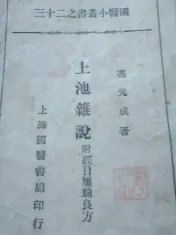 國醫小叢書之二十三
馮元成著
上池雜說
附經目屢驗良方
上海國醫書局印行